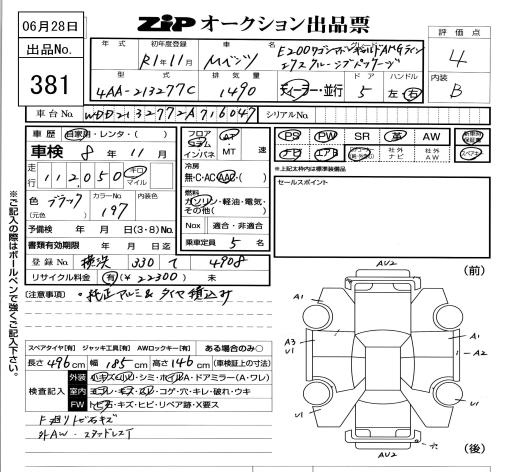 06月28日
出品No.
381
ZIPオークション出品票
年式 初年度登録 車名 グレード
R1年11月 Mベンツ E200ワゴン アバンギャルド AMGライン
型式 排気量 ドア ハンドル
4AA-213277C 1490 ディーラー・並行 5 左 右
評価点
4
内装
B
車台No. WDD2132772A716047 シリアルNo.
車歴 自家用・レンタ・( )
車検 8年 11月
走行 112,050 キロ マイル
色 ブラック カラーNo. 197 内装色
(元色)
予備検 年 月 日(3・8)No.
書類有効期限 年 月 日迄
登録No. 横浜 330 て 4908
リサイクル料金 有(¥22300) 未
フロア コラム インパネ AT・MT 速
冷房
無・C・AC・AAC・( )
燃料
ガソリン・軽油・電気・その他( )
Nox 適合・非適合
乗車定員 5 名
PS PW SR 革 AW 新車時保証書
ナビ エアB 社外ナビ 社外AW
＊上記太枠内は標準装備品
セールスポイント
[注意事項] ・純正アルミ&タイヤ積込み
スペアタイヤ[有] ジャッキ工具[有] AWロックキー[有] ある場合のみ○
長さ 496cm 幅 185cm 高さ 146cm (車検証上の寸法)
検査記入
外装 小キズ・凹・シミ・ホイルA・ドアミラー(A・ワレ)
室内 ヨゴレ・キズ・スレ・コゲ・穴・キレ・破れ・ウキ
FW トビ石・キズ・ヒビ・リペア跡・X要ス
F廻りトビ石キズ
外AW・スタッドレス
※ご記入の際はボールペンで強くご記入下さい。
(前)
AV2
A1
A3
V1
A1
A2
V1
V1
穴
AV2
(後)